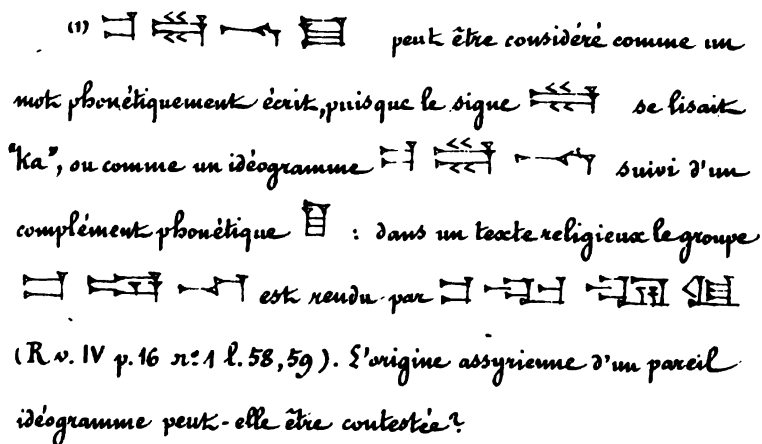 (1) peut être considéré comme un
mot phonétiquement écrit, puisque le signe se lisait
"Ka", ou comme un idéogramme suivi d'un
complément phonétique : dans un texte religieux le groupe
est rendu par
(R v. IV p. 16 nº 1 l. 58, 59). L'origine assyrienne d'un pareil
idéogramme peut-elle être contestée?